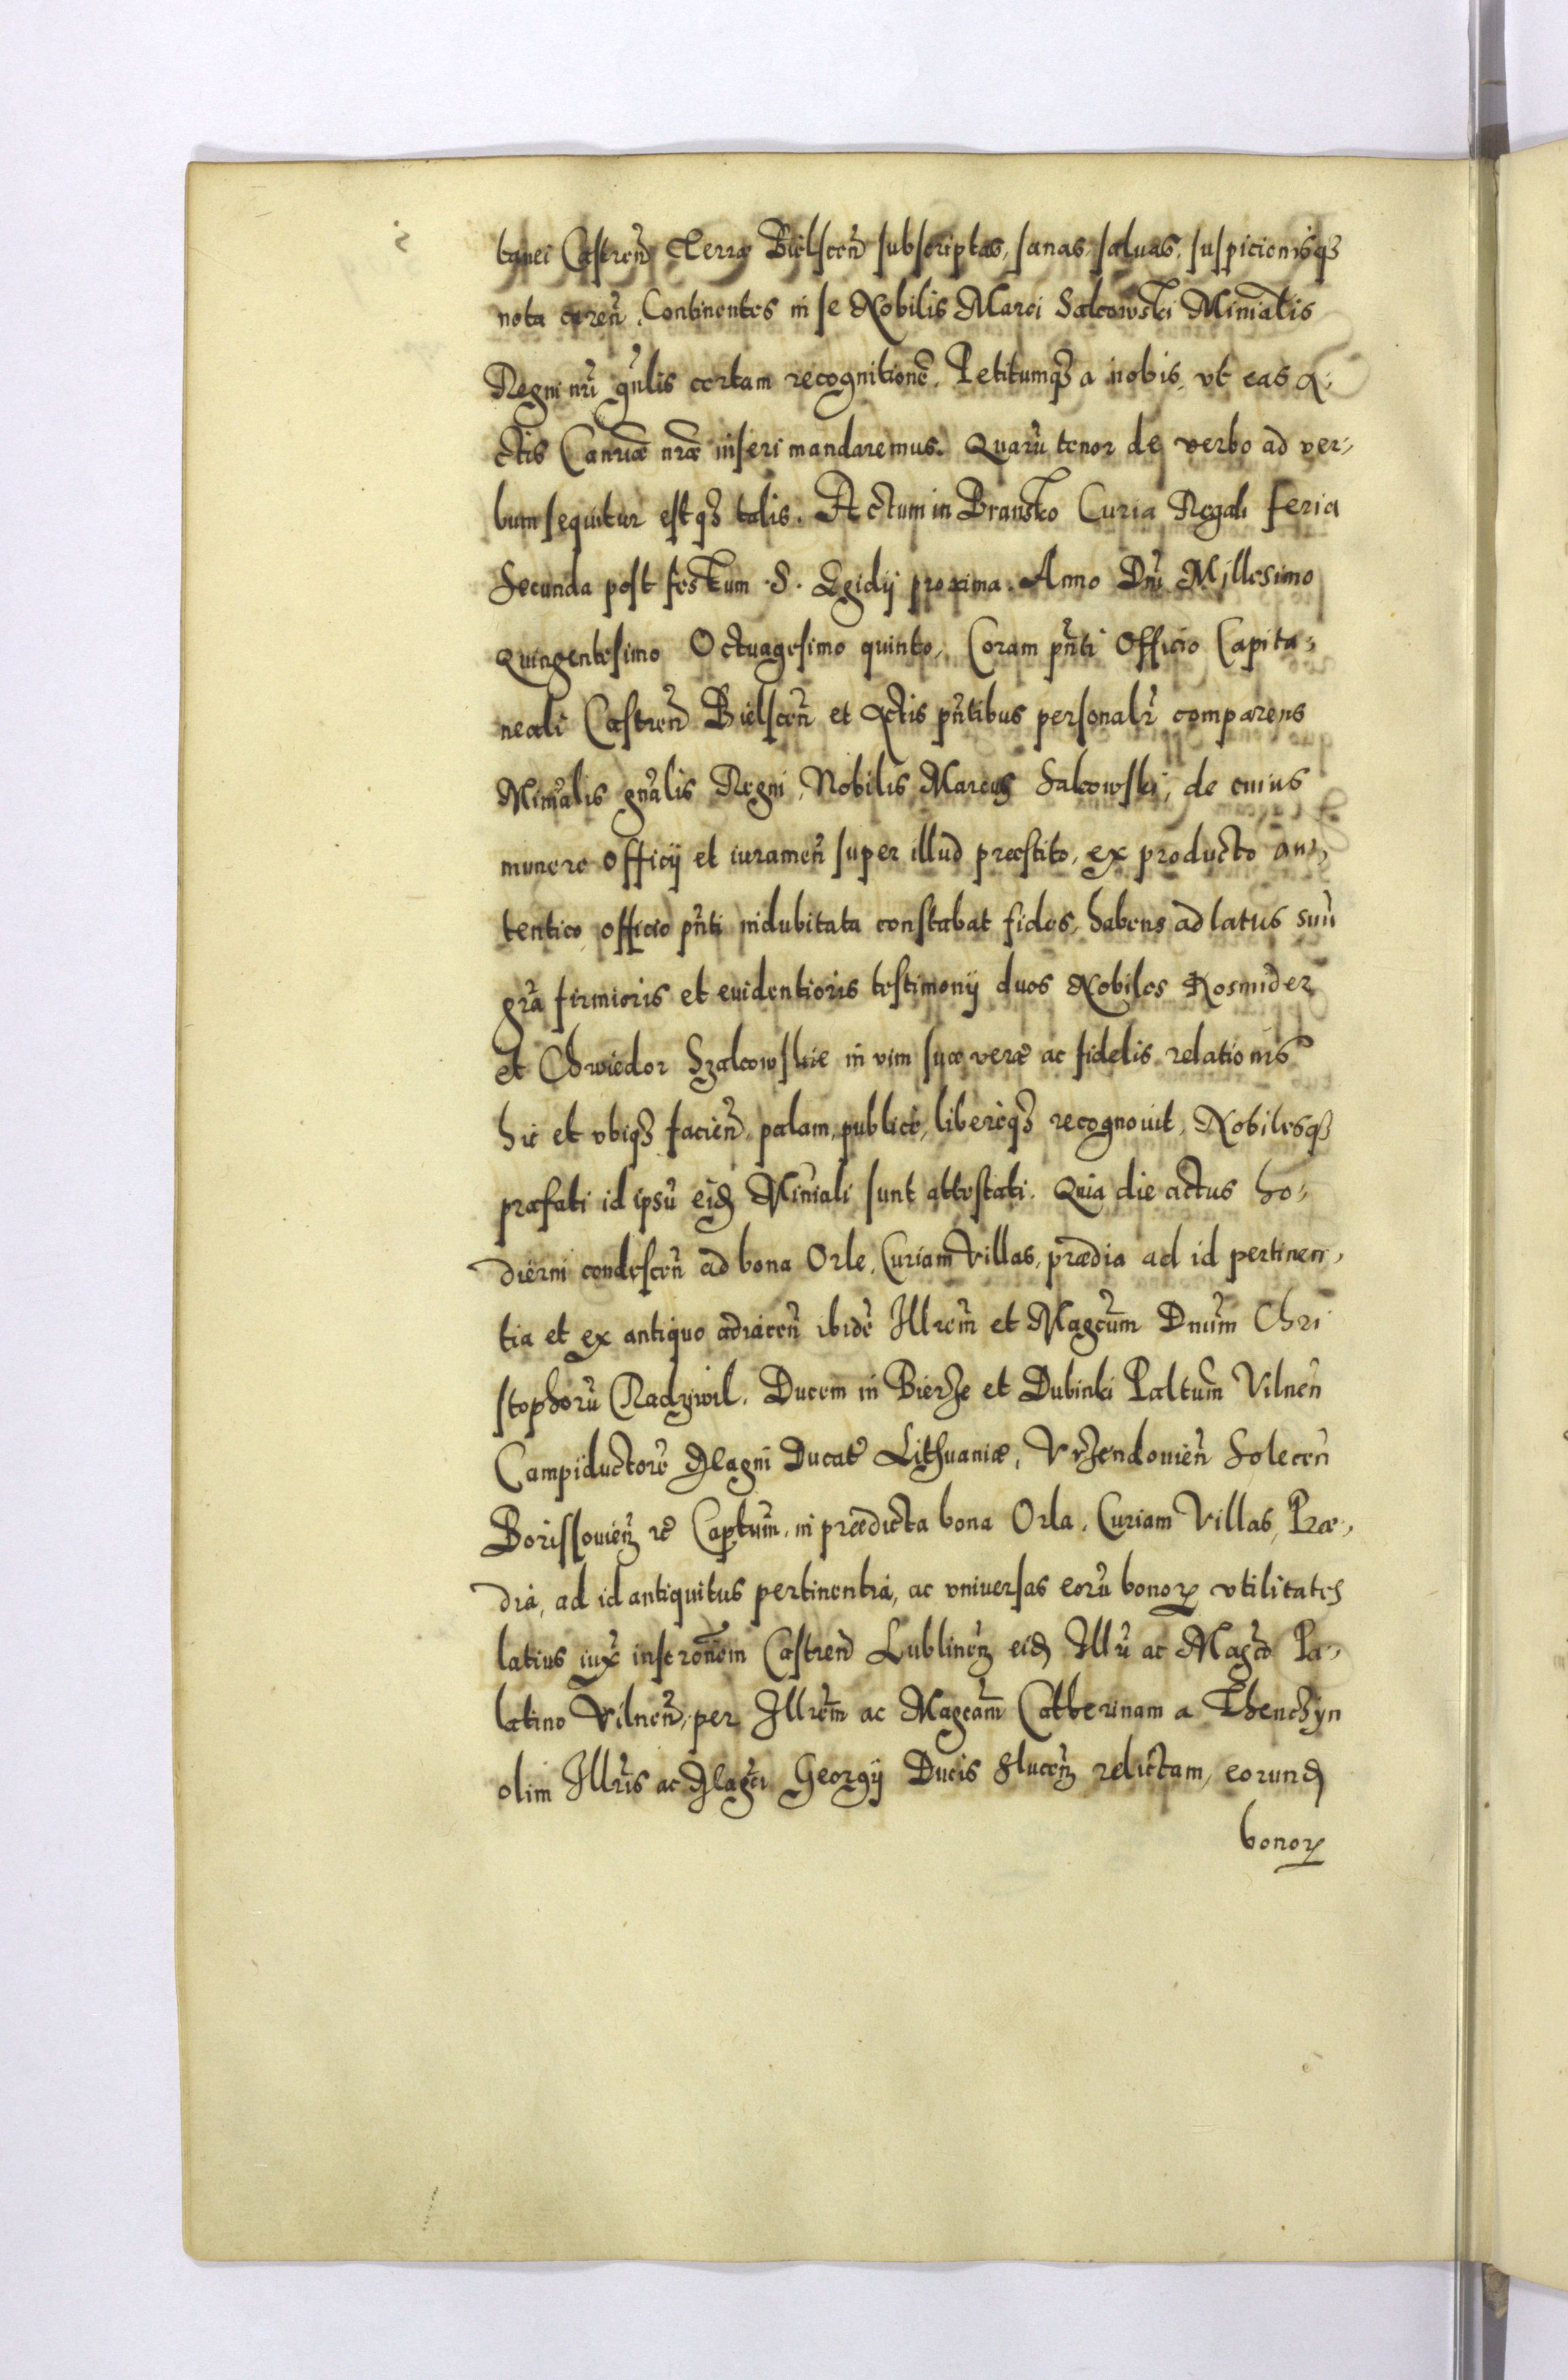 tanei Castren̄ Terræ Bielscen̄ subscriptas, sanas, saluas, suspicionisqꝫ
nota caren̄, Continentes in se Nobilis Marci Salcowski Miniālis
Regni nr̄i gn̄lis certam recognitionē. Petitumqꝫ a nobis, vt eas A-
ctis Can̄riæ nr̄æ inseri mandaremus. Quarū tenor de verbo ad ver-
bum sequitur estqꝫ talis. Actum in Bransko Curia Regali feria
Secunda post festum .S. Egidij proxima. Anno Dn̄i Millesimo
Quingentesimo Octuagesimo quinto, Coram pn̄ti Officio Capita-
neali Castren̄ Bielscen̄ et Actis pn̄tibus personalr̄ comparens
Miniālis gn̄alis Regni, Nobilis Marcus Salcowski, de cuius
munere Officij et iuramen̄ super illud præstito, ex producto au-
tentico, officio pn̄ti indubitata constabat fides, habens ad latus suū
gr̄a firmioris et euidentioris testimonij duos Nobiles Kosmider
et Chwiedor Szalcowskie in vim suæ veræ ac fidelis relationis
hic et vbiqꝫ facien̄, palam, publicè, liberèqꝫ recognouit, Nobilesqꝫ
præfati id ipsū eid̄ Miniāli sunt attestati. Quia die actus ho-
dierni condescen̄ ad bona Orle, Curiam Villas, prædia ad id pertinen-
tia et ex antiquo adiacen̄ ibidē Illrem̄ et Magcūm Dnūm Chri
stophorū Radzywil. Ducem in Bierże et Dubinki Paltūm Vilnen̄
Campiductorē Magni Ducat9 Lithuaniæ, Vrzendouien̄ Solecen̄
Borissouien̄ rc̄ Captūm, in prædicta bona Orla, Curiam Villas, Præ-
dia, ad id antiquitus pertinentia, ac vniuersas eorū bonoꝝ vtilitates
latius iux̄ inscrōnem Castren̄ Lublinen̄ eid̄ Illrī ac Magcō Pa-
latino Vilnen̄, per Illrem̄ ac Magcām Catherinam a Thenchyn
olim Illrīs ac Magcī Georgij Ducis Slucen̄ relictam, eorund̄
bonoꝝ